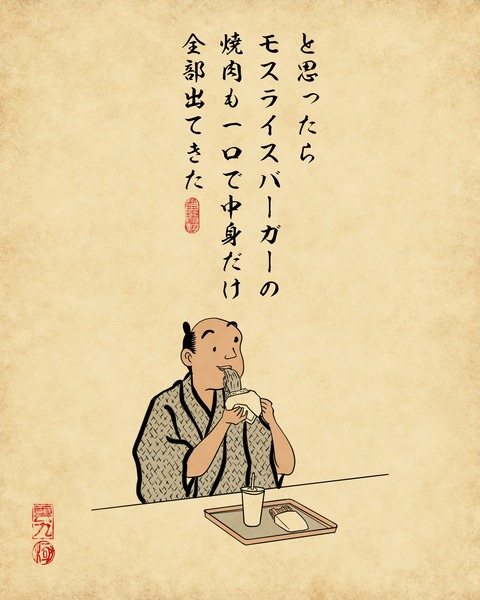 と思ったら
モスライスバーガーの
焼肉も一口で中身だけ
全部出てきた